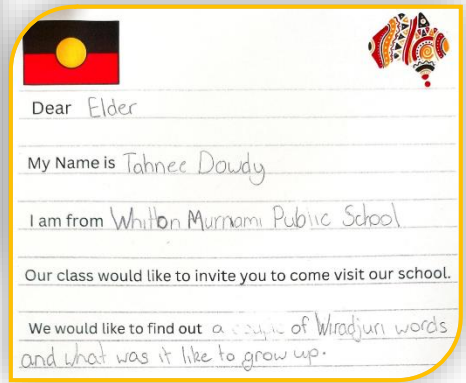 Dear Elder
My Name is Tahnee Dowdy
I am from Whitton Murrami Public School
Our class would like to invite you to come visit our school.
We would like to find out a couple of Wiradjuri words
and what was it like to grow up.